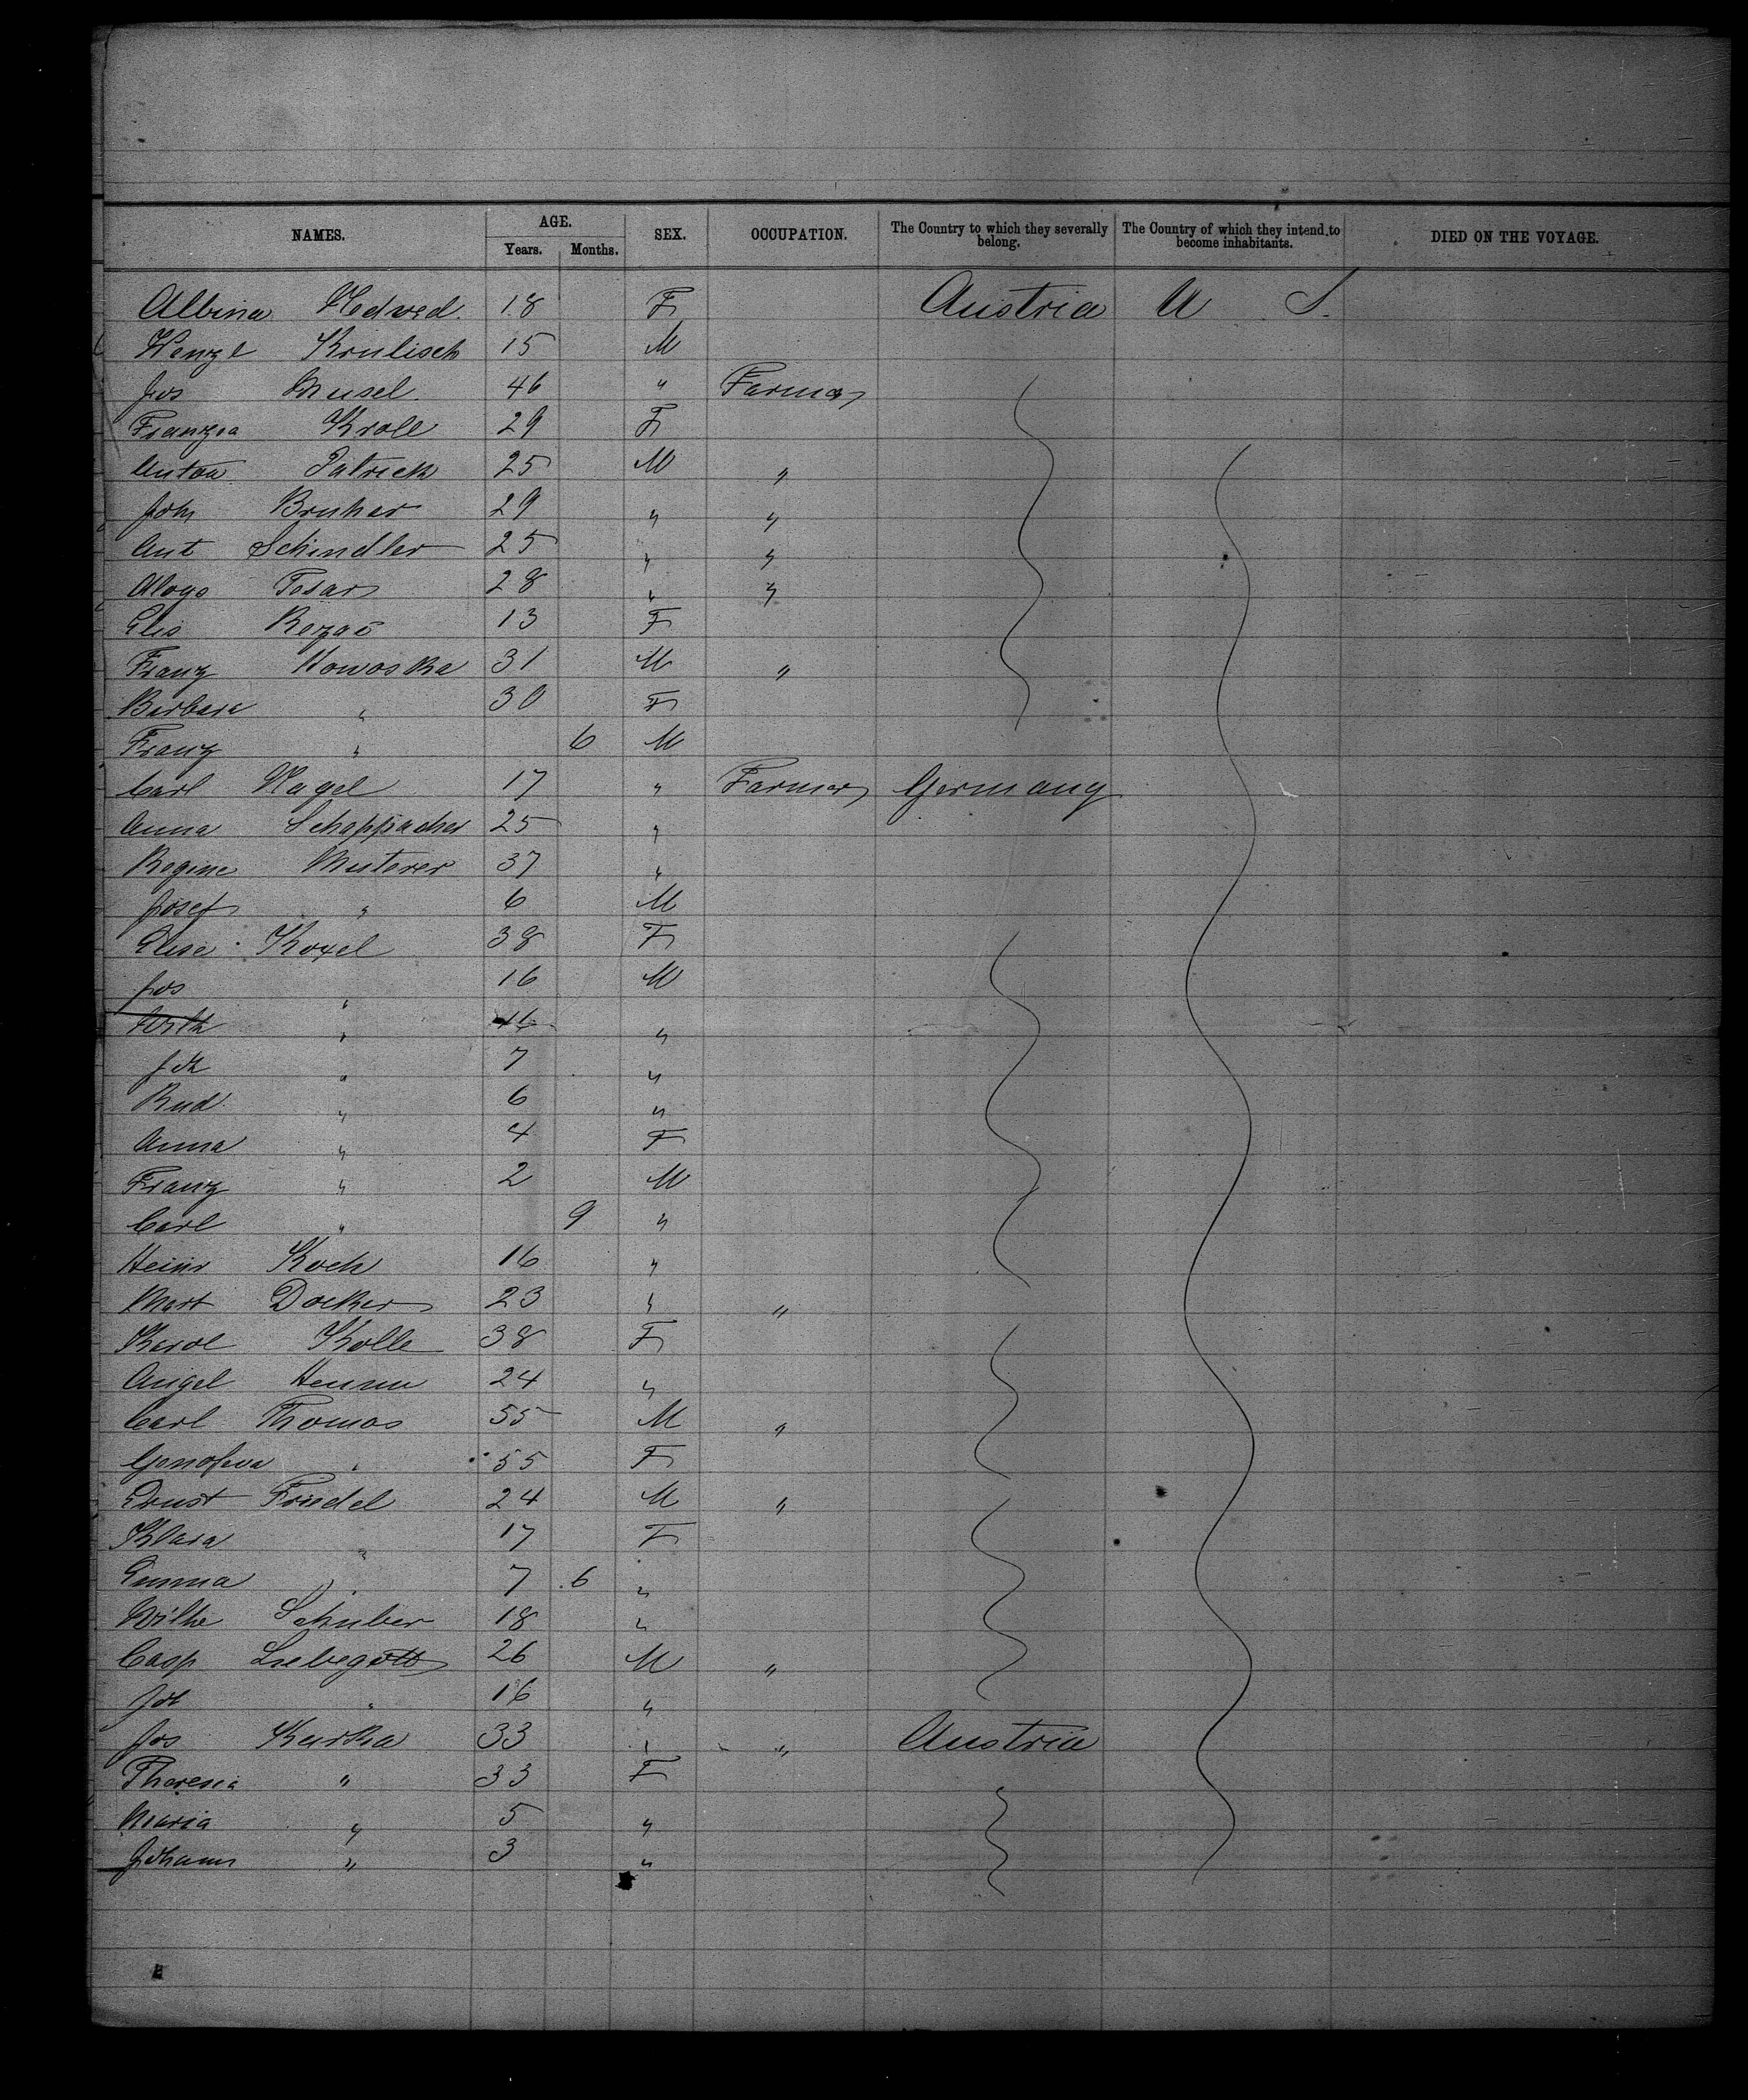 NAMES. AGE. Years. Months. SEX. OCCUPATION. The Country to which they severally belong. The Country of which they intend to become inhabitants. DIED ON THE VOYAGE.
Albina Medved. 18 F Austria U S.
Wenzl Krulisch 15 M
Jos Musel. 46 " Farmer
Franzca Kroll 29 F
Anton Patrick 25 M "
Joh Bruher 29 " "
Ant Schindler 25 " "
Aloys Tesar 28 " "
Elis Rezac 13 F
Franz Nowoska 31 M "
Barbara " 30 F
Franz " 6 M
Carl Nagel 17 " Farmer Germany
Anna Schappacher 25 "
Regine Muterer 37 "
Josef " 6 M
Elise Koxel 38 F
Jos " 16 M
Wilh " 16 "
Joh " 7 "
Rud. " 6 "
Anna " 4 F
Franz " 2 M
Carl " 9 "
Heinr Koch 16 "
Mart Docker 23 " "
Karol Kolle 38 F
Angel 24 "
Carl Thomas 55 M "
Genofeva " 55 F
Ernst Friedel 24 M "
Klara " 17 F
Emma " 7 6 "
Wilhe Schuber 18 "
Casp Liebegott 26 M "
Joh " 16 "
Jos Kurka 33 " " Austria
Theresia " 33 F
Maria " 5 "
Johann " 3 "